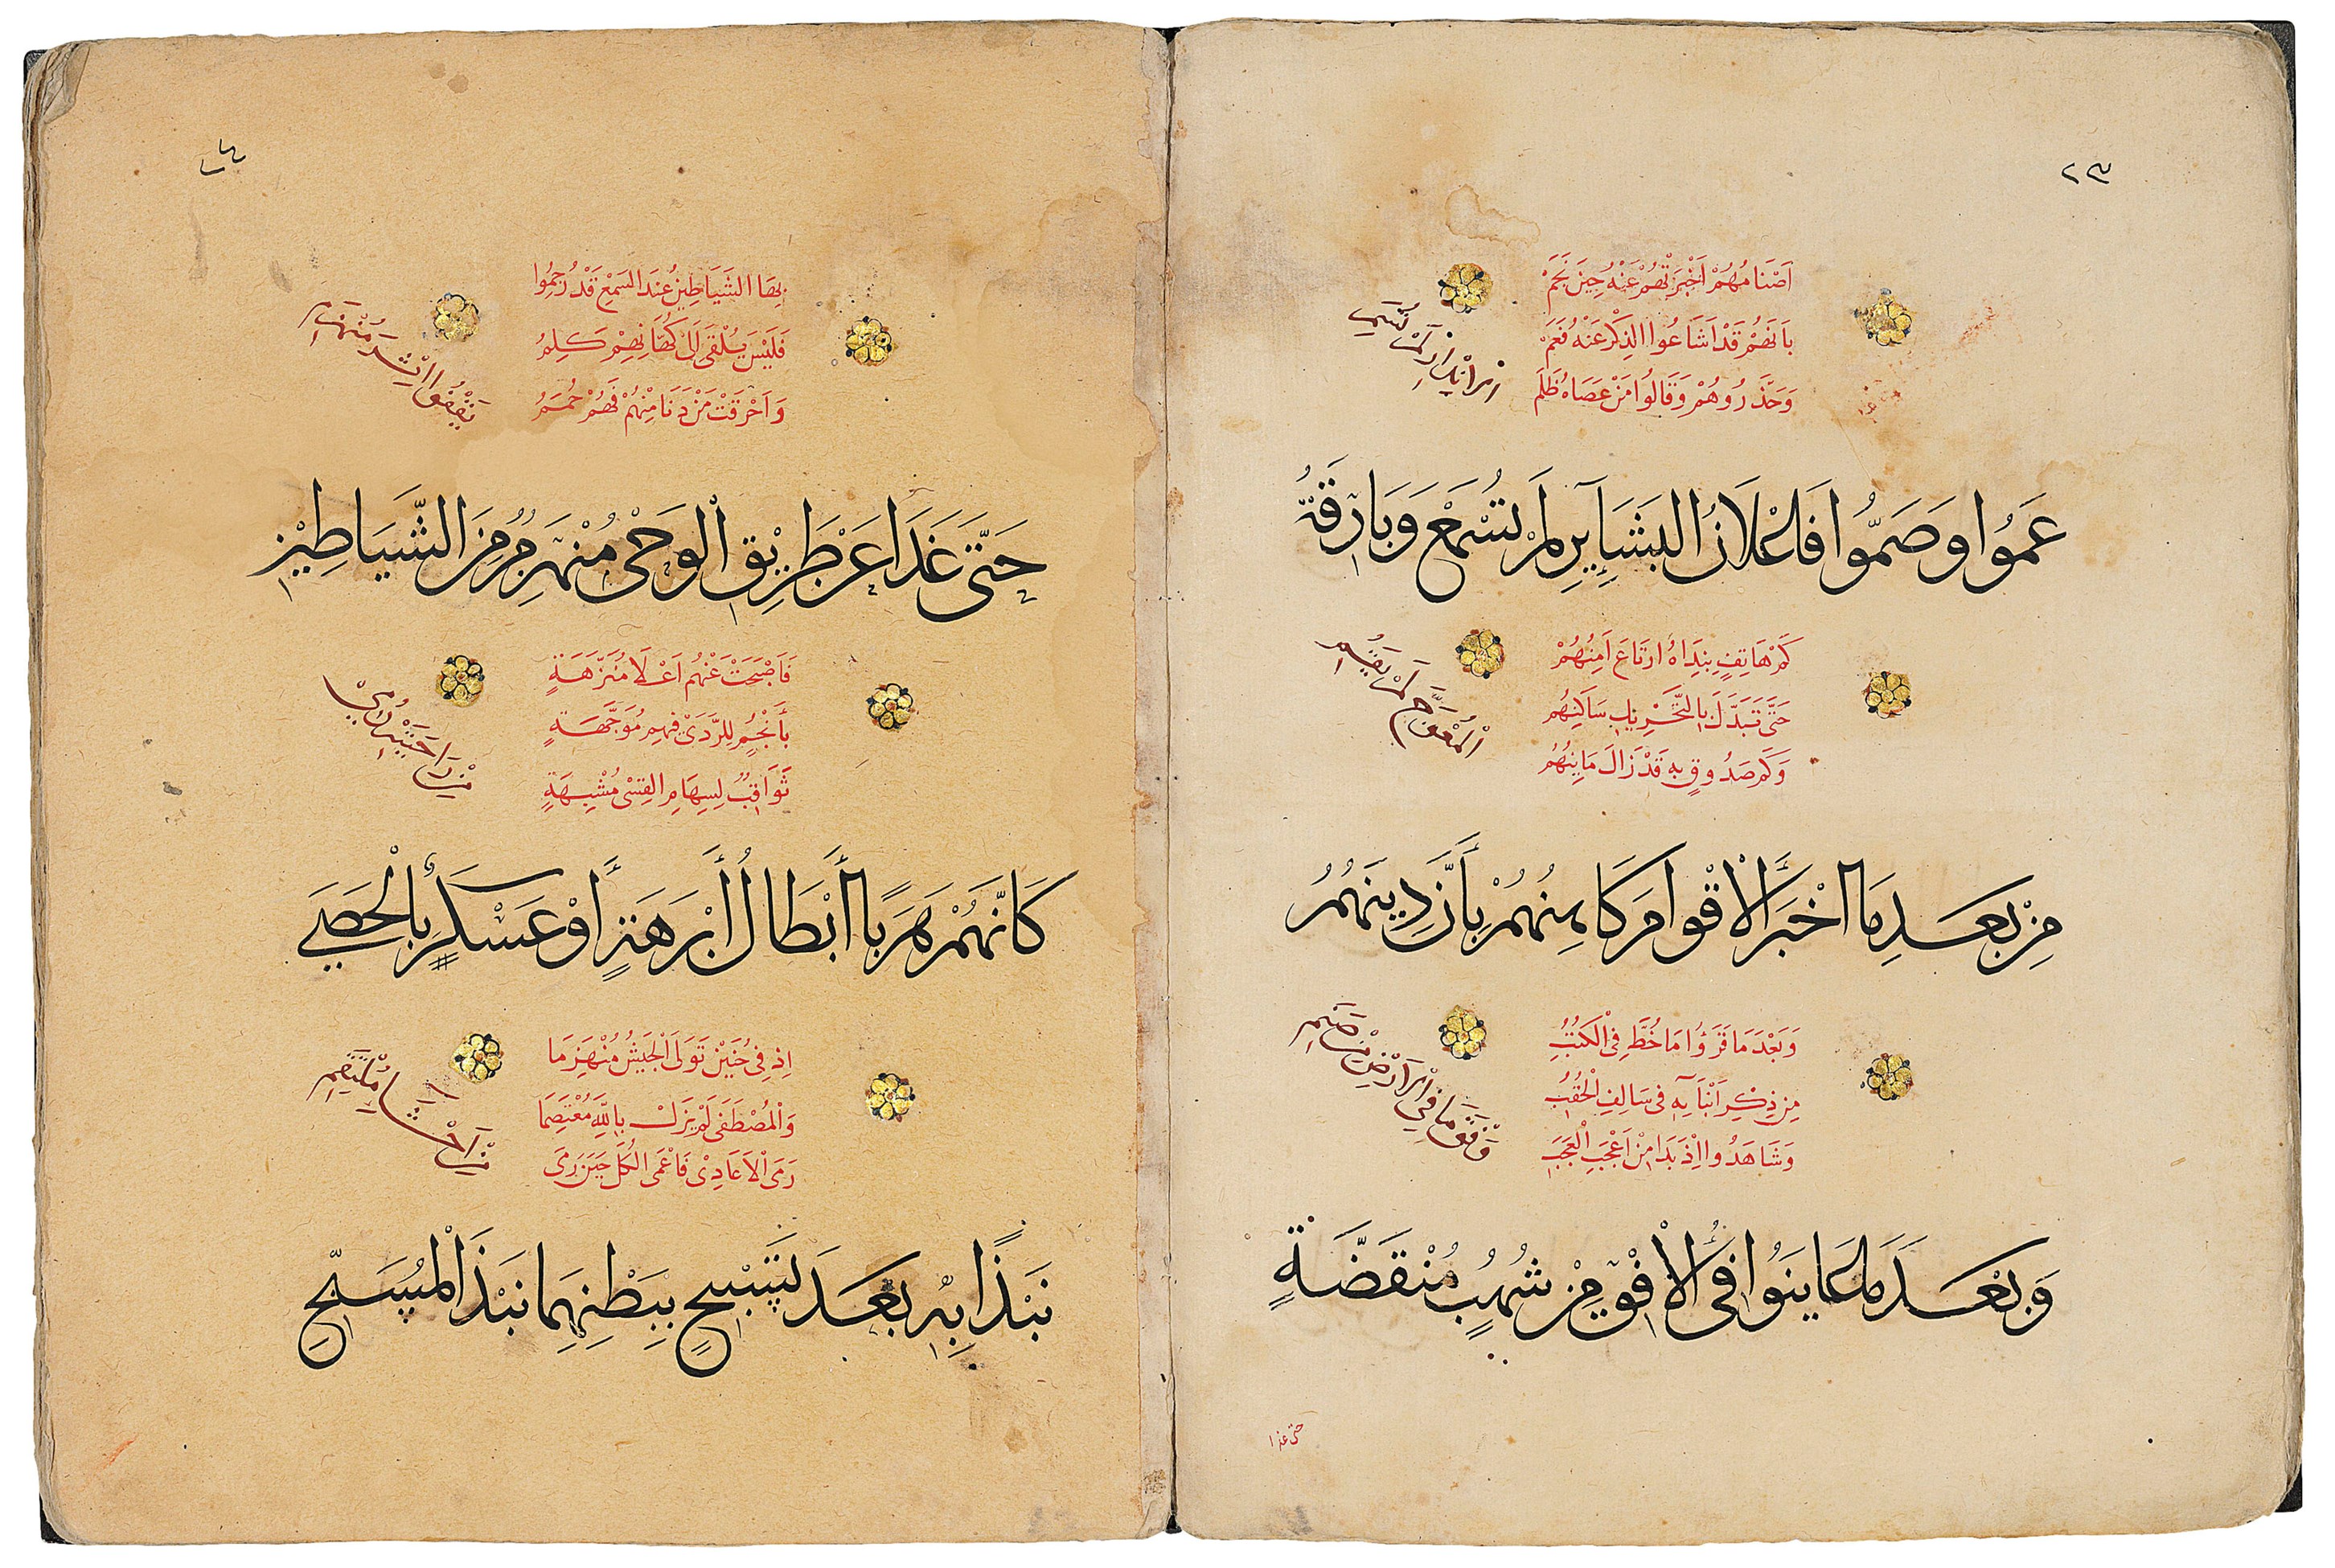 ٢٣
أَصْنَامُهُمْ أَخْبَرَتْهُمْ عَنْهُ حِينَ نَجَمْ
بِأَنَّهُمْ قَدْ أَشَاعُوا الذِّكْرَ عَنْهُ فَعَمْ
وَحَذَّرُوهُمْ وَقَالُوا مَنْ عَصَاهُ ظَلَمْ
عَمُوا وَصَمُّوا فَاعْلَانُ الْبَشَايِرِ لَمْ تُسْمَعْ وَبَارِقَةُ
الْإِنْذَارِ لَمْ تُشَمِ
كَمْ هَاتِفٍ بِنِدَاهُ ارْتَاعَ آمِنُهُمْ
حَتَّى تَبَدَّلَ بِالتَّخْرِيبِ سَاكِنُهُمْ
وَكَمْ صَدُوقٍ بِهِ قَدْ زَالَ مَايِنُهُمْ
مِنْ بَعْدِ مَا أَخْبَرَ الْأَقْوَامَ كَاهِنُهُمْ بِأَنَّ دِينَهُمُ
الْمُعْوَجَّ لَمْ يَقُمِ
وَبَعْدَ مَا قَرَؤُا مَا خُطَّ فِي الْكُتُبِ
مِنْ ذِكْرِ أَنْبَآئِهِ فِي سَالِفِ الْحُقُبِ
وَشَاهَدُوا إِذْ بَدَا مِنْ أَعْجَبِ الْعَجَبِ
وَبَعْدَ مَا عَايَنُوا فِي الْأُفْقِ مِنْ شُهُبٍ مُنْقَضَّةٍ
وَفْقَ مَا فِي الْأَرْضِ مِنْ صَنَمِ
حتى غدا
بِهَا الشَّيَاطِينُ عِنْدَ السَّمْعِ قَدْ رُجِمُوا
فَلَيْسَ يُلْقَى إِلَى كُهَّانِهِمْ كَلِمُ
وَأَحْرَقَتْ مَنْ دَنَا مِنْهُمْ فَهُمْ حُمَمُ
حَتَّى غَدَا عَنْ طَرِيقِ الْوَحْيِ مُنْهَزِمٌ مِنَ الشَّيَاطِينِ
يَقْفُوا إِثْرَ مُنْهَزِمِ
فَأَصْبَحَتْ عَنْهُمُ أَعْلَا مُنَزَّهَةٍ
بِأَنْجُمٍ لِلرَّدَى فِيهِمْ مُوَجَّهَةٍ
ثَوَاقِبٌ لِسِهَامِ الْقِسْيِ مُشْبِهَةٍ
كَأَنَّهُمْ هَرَبًا أَبْطَالُ أَبْرَهَةٍ أَوْ عَسْكَرٍ بِالْحَصَى
مِنْ رَاحَتَيْهِ رُمِي
إِذْ فِي حُنَيْنٍ تَوَلَّى الْجَيْشُ مُنْهَزِمَا
وَالْمُصْطَفَى لَمْ يَزَلْ بِاللَّهِ مُعْتَصِمَا
رَمَى الْأَعَادِيَ فَأَعْمَى الْكُلَّ حِينَ رَمَى
نَبْذًا بِهِ بَعْدَ تَسْبِيحٍ بِبَطْنِهِمَا نَبْذَ الْمُسَبِّحِ
مِنْ أَحْشَاءِ مُلْتَقِمِ